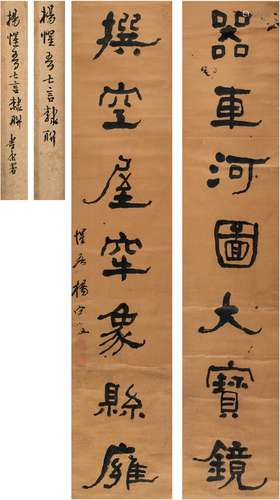 器車河圖大寶鏡
撰空屋窂象縣廱
惺吾楊守敬
楊惺吾七言隸聯
楊惺吾七言隸聯